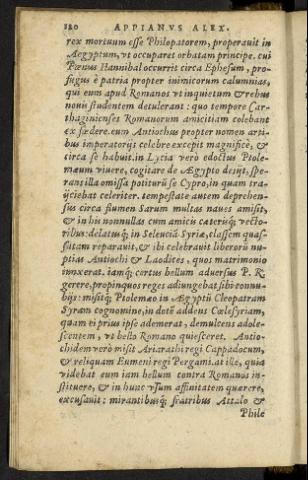 180 APPIANVS ALEX.
rex mortuum esse Philopatorem, properauit in
Aegyptum, vt occuparet orbatam principe. cui
Pœnus Hannibal occurrit circa Ephesum, pro-
fugus è patria propter inimicorum calumnias,
qui eum apud Romanos vt inquietum & rebus
nouis studentem detulerant: quo tempore Car-
thaginienses Romanorum amicitiam colebant
ex fœdere. eum Antiochus propter nomen arti-
bus imperatorijs celebre excepit magnificè, &
circa se habuit. in Lycia verò edoctus Ptole-
mæum viuere, cogitare de Ægypto desijt, spe-
rans illa omissa potiturū se Cypro, in quam tra-
ijciebat celeriter. tempestate autem deprehen-
sus circa flumen Sarum multas naues amisit,
& in his nonnullas cum amicis cæterisq́; vecto-
ribus: delatusq́; in Seleuciā Syriæ, classem quas-
satam reparauit, & ibi celebrauit liberorū nu-
ptias Antiochi & Laodites, quos matrimonio
iunxerat. iamq́; certus bellum aduersus P. R.
gerere, propinquos reges adiungebat sibi connu-
bijs: misitq́; Ptolemæo in Ægyptū Cleopatram
Syran cognomine, in dotē addens Cœlesyriam,
quam ei prius ipse ademerat, demulcens adole-
scentem, vt bello Romano quiesceret. Antio-
chidem verò misit Ariarathi regi Cappadocum,
& reliquam Eumeni regi Pergami. at ille, quia
videbat eum iam bellum contra Romanos in-
stituere, & in hunc vsum affinitatem quærere,
excusauit: mirantibusq́; fratribus Attalo &
Phile